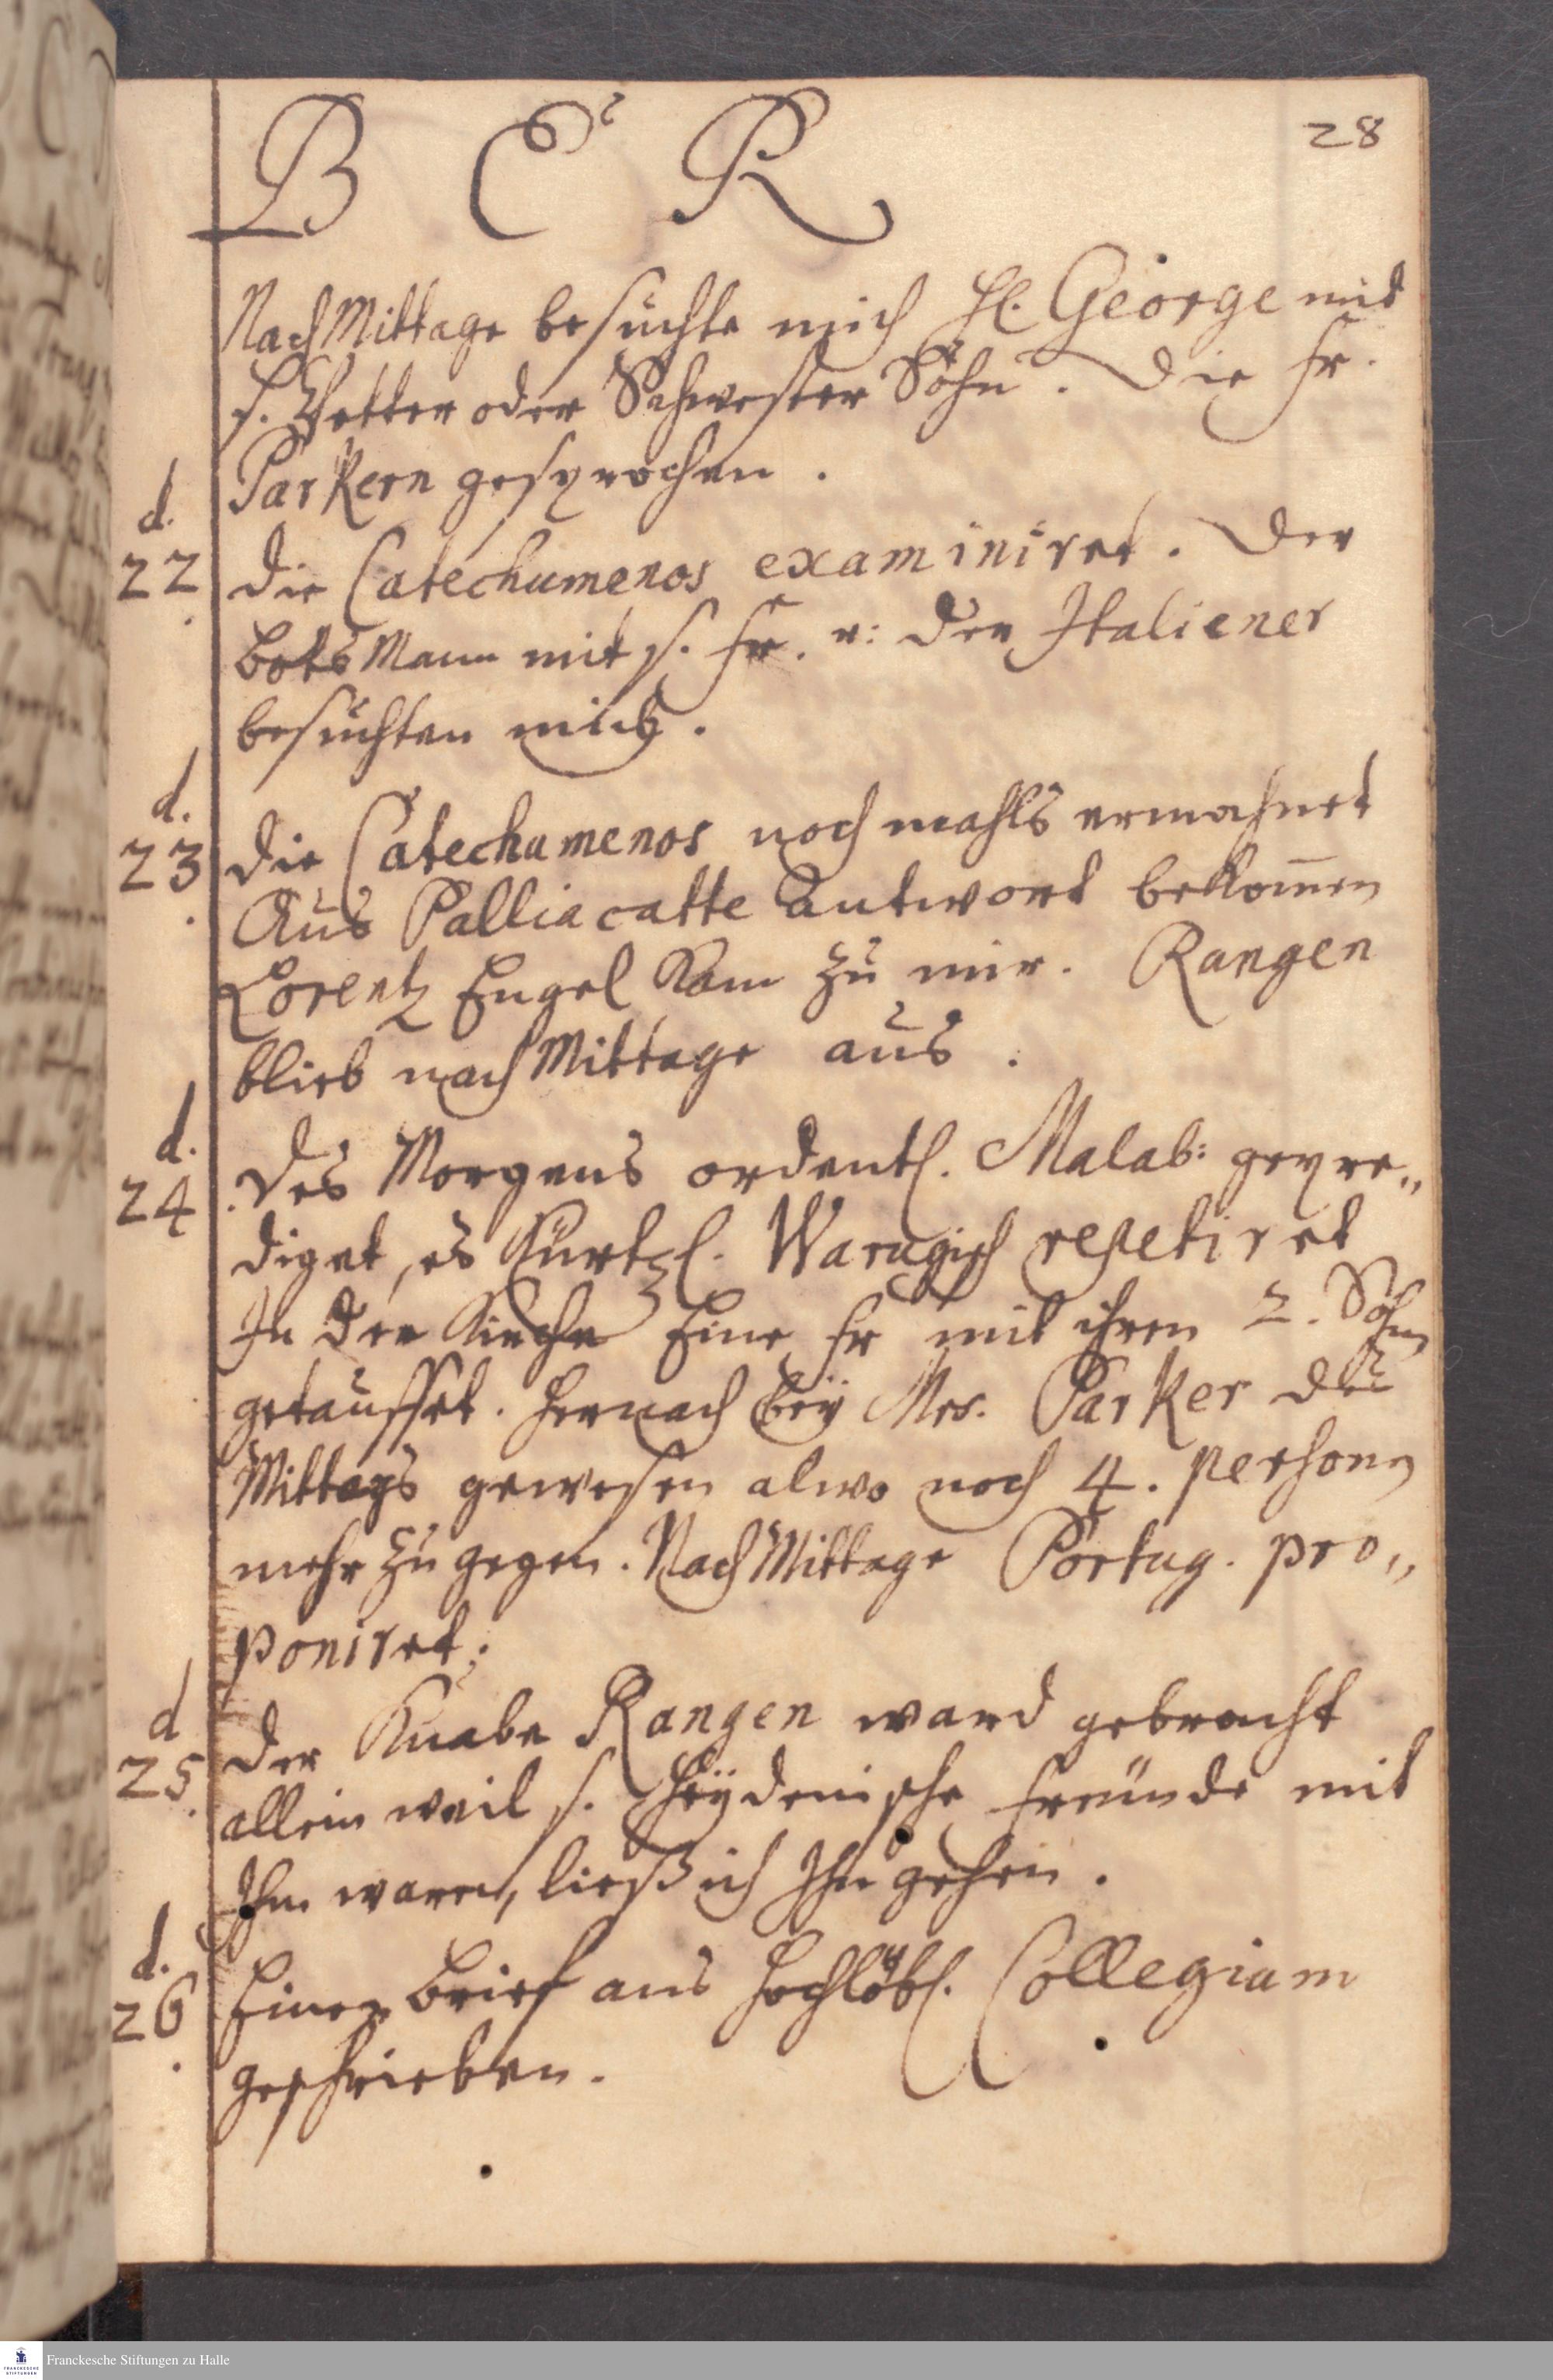 28
B E R
NachMittage besuchte mich H. George mit
s. Vetter oder Schwester Sohn. Die Fr.
Parkern gesprochen.
d.
22. die Catechumenos examiniret. Der
botsMann mit s. Fr. u: der Italiener
besuchten mich.
d.
23. die Catechumenos nochmahls ermahnet
Aus Palliacatte Antwort bekom̄en
Lorentz Engel kam zu mir. Rangen
blieb nachMittage aus.
d.
24. des Morgens ordentl. Malab: gepre„
diget, es kürtzl. Warugisch repetiret
In der Kirche Eine Fr mit ihren 2. Söhn
getauffet. Hernach bey Mrs. Parker des
Mittags gewesen alwo noch 4. persone
mehr zu gegen. NachMittage Portug. pro„
poniret.
d
25. der Knabe Rangen ward gebracht
allein weil s. Heydenische freunde mit
Ihm waren, ließ ich Ihn gehen.
d.
26. Einen brief ans Hochlöbl. Collegium
geschrieben.
FRANCKESCHE STIFTUNGEN
Franckesche Stiftungen zu Halle